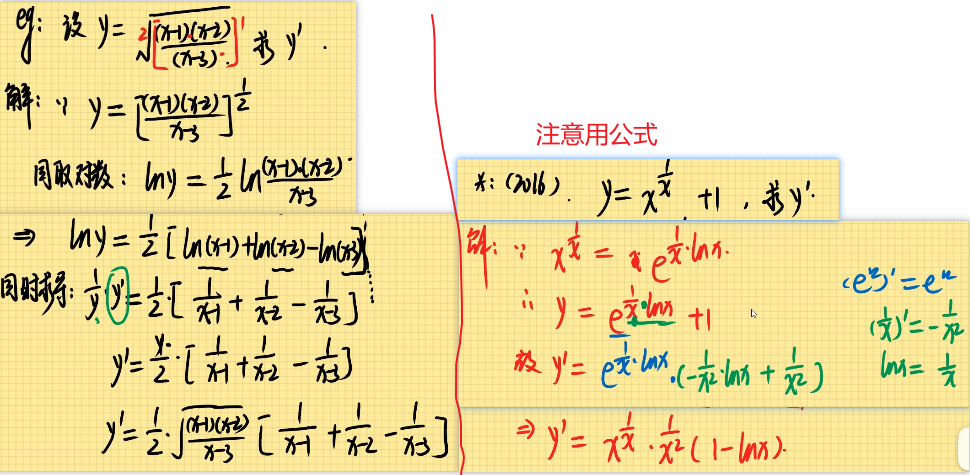 eg: 设 y = √[(x-1)(x-2)/(x-3)]' 求 y'.
解: ∵ y = [(x-1)(x-2)/x-3]^(1/2)
同取对数: lny = 1/2 ln (x-1)(x-2)/x-3
⇒ lny = 1/2 [ln(x-1)+ln(x-2)-ln(x-3)]
同时求导: 1/y · y' = 1/2 · [1/x-1 + 1/x-2 - 1/x-3]
y' = y/2 · [1/x-1 + 1/x-2 - 1/x-3]
y' = 1/2 · √((x-1)(x-2)/x-3) [1/x-1 + 1/x-2 - 1/x-3]
注意用公式
(2016). y = x^(1/x) + 1, 求 y'.
解: ∵ x^(1/x) = e^(1/x·lnx).
∴ y = e^(1/x·lnx) + 1
故 y' = e^(1/x·lnx)·(-1/x²·lnx + 1/x²)
⇒ y' = x^(1/x) · 1/x² (1-lnx).
(e^x)' = e^x
(1/x)' = -1/x²
lnx = 1/x